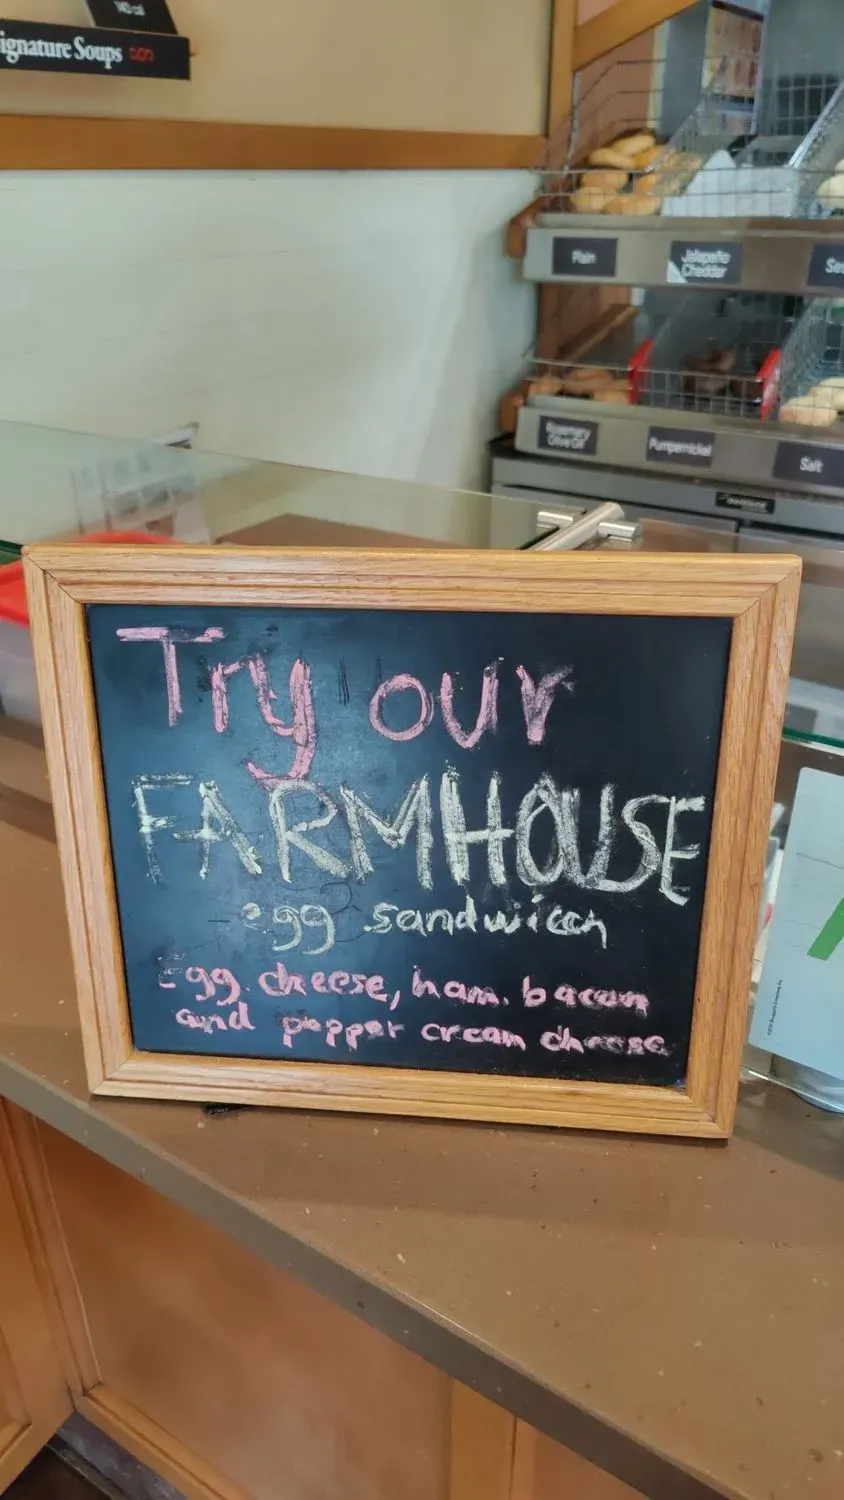 ignature Soups
Plain
Jalapeño
Cheddar
Ses
Rosemary
Olive Oil
Pumpernickel
Salt
Try our
FARMHOUSE
egg sandwich
Egg. cheese, ham. bacon
and pepper cream cheese